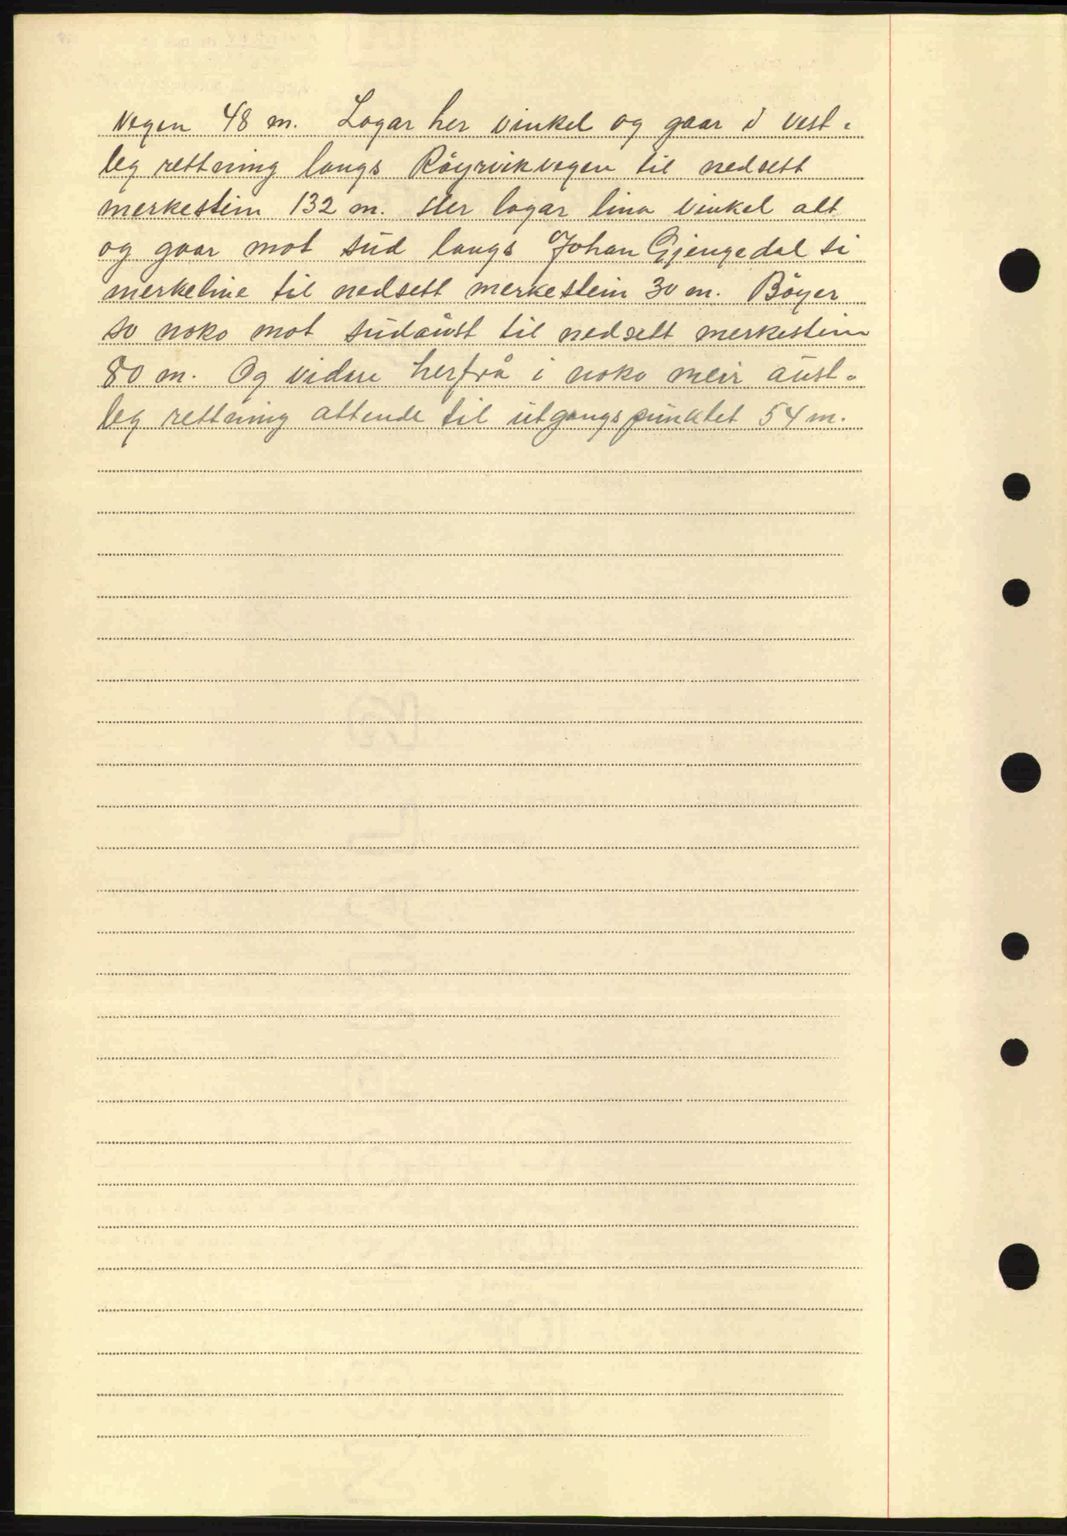 vegen 48 m. Lagar her vinkel og gaar i vest-
leg rettning langs Røyrvikvegen til nedsett
merkestein 132 m. Her lagar lina vinkel att
og gaar mot süd langs Johan Gjengedal si
merkeline til nedsett merkestein 30 m. Bøyer
so noko mot südaüst til nedsett merkestein
80 m. Og vidare herfrå i noko meir aüst-
leg rettning attende til ütgangspünktet 54 m.